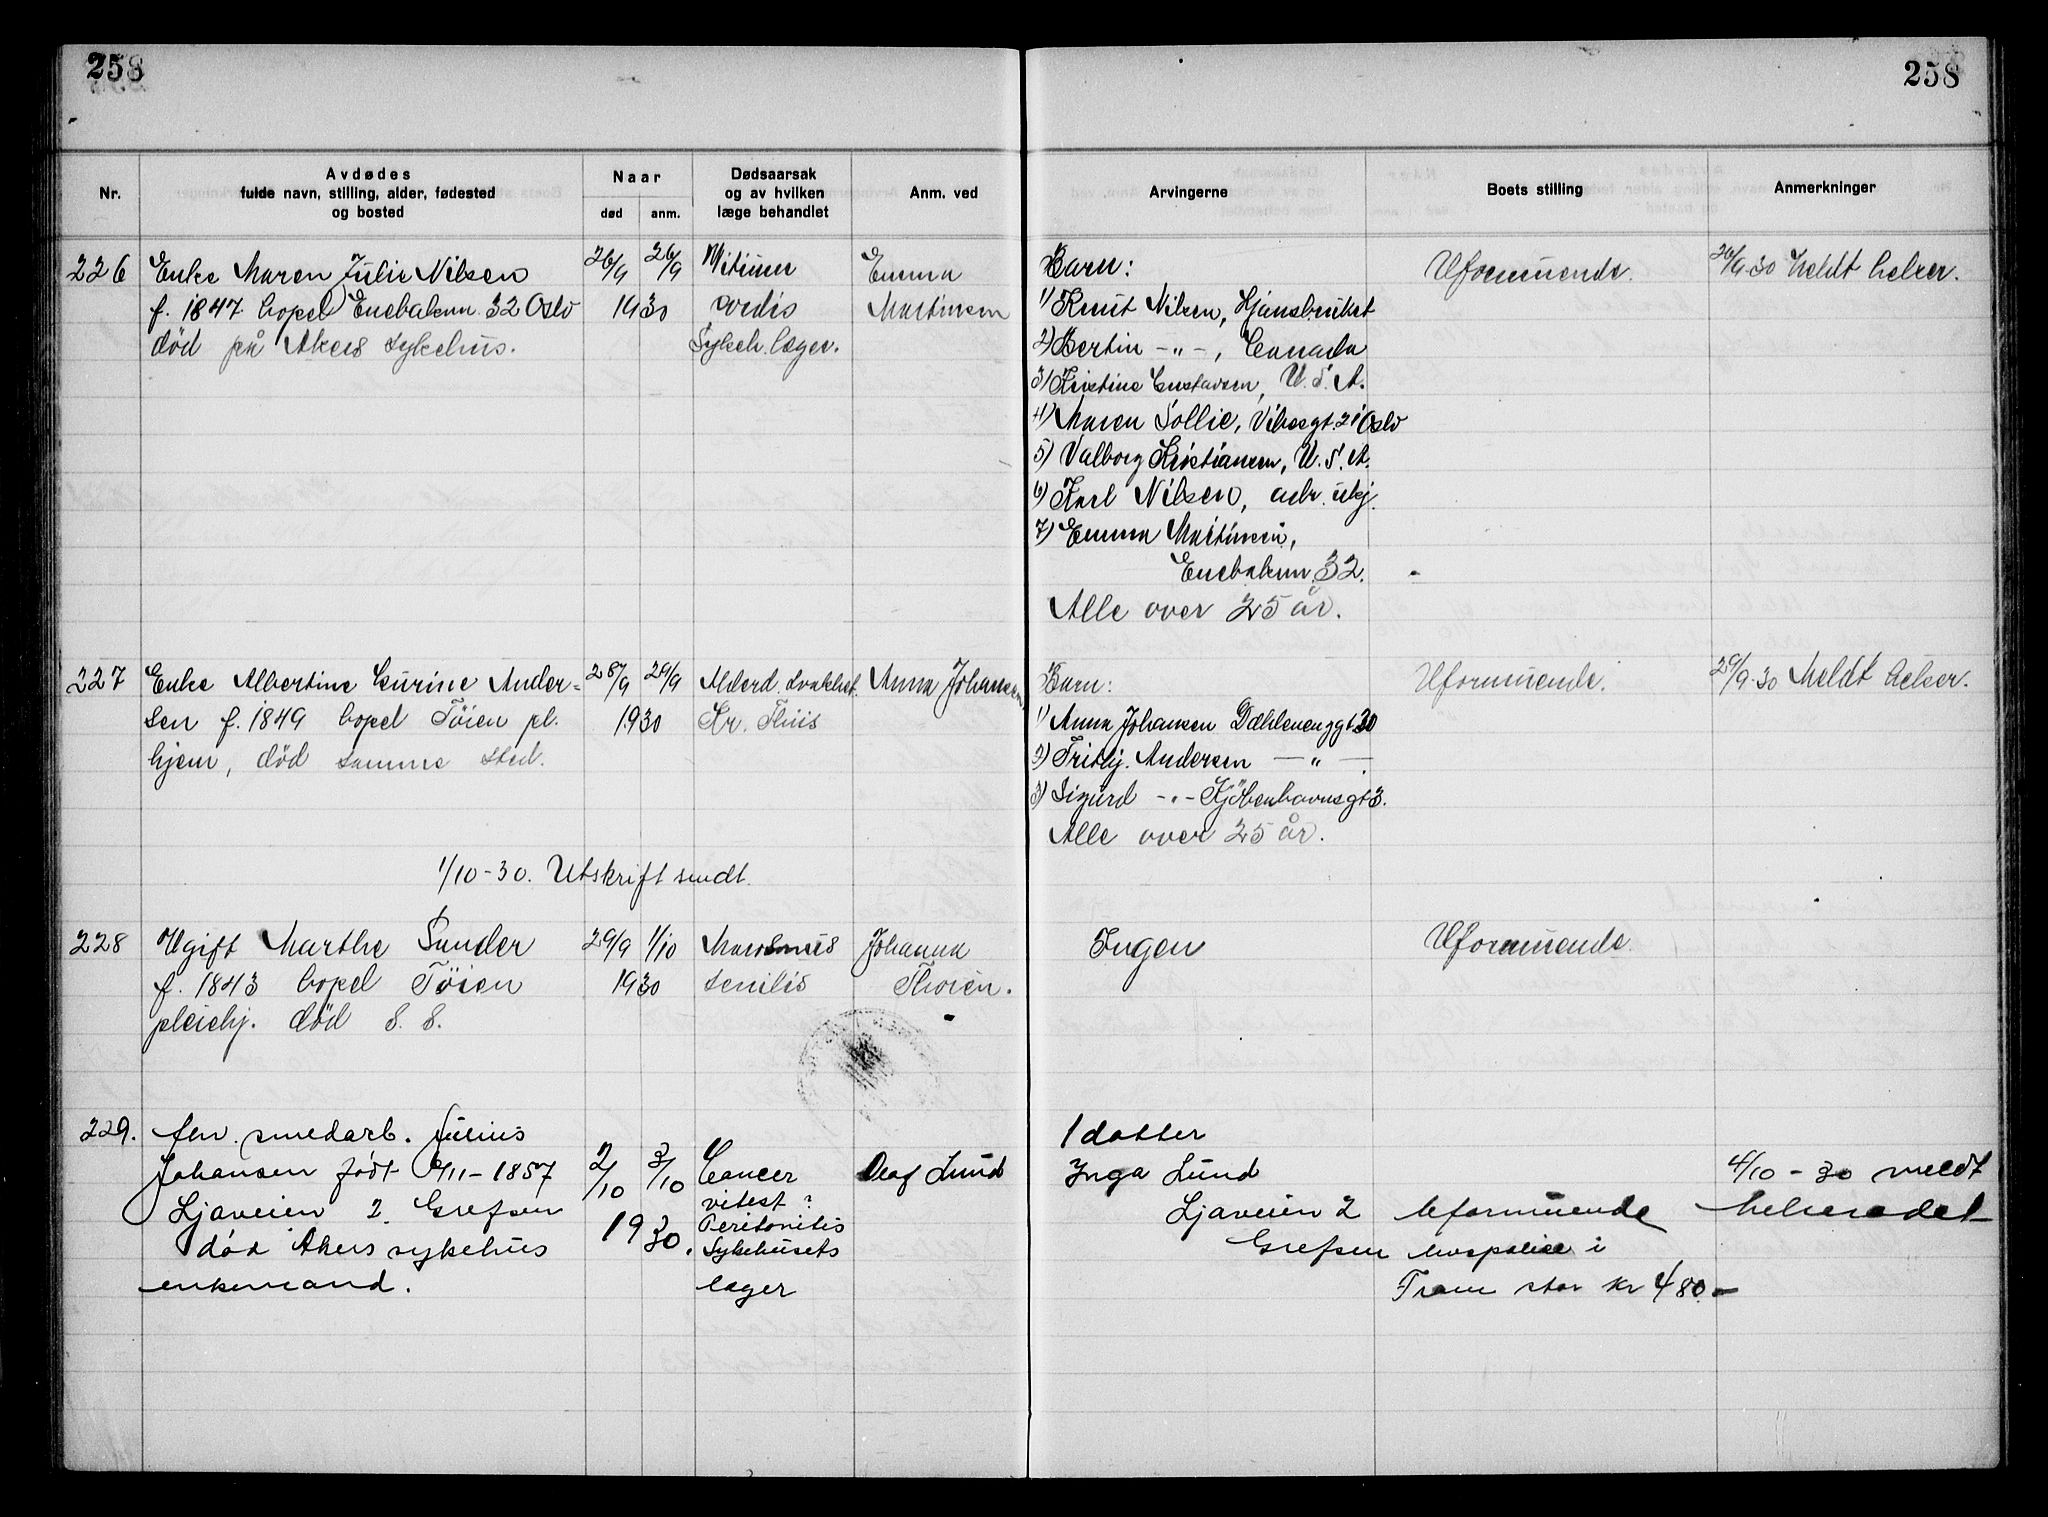 258
258
Nr.
Avdødes
fulde navn, stilling, alder, fødested
og bosted
Naar
død
anm.
Dødsaarsak
og av hvilken
læge behandlet
Anm. ved
Arvingerne
Boets stilling
Anmerkninger
226 Enke Maren Julie Nilsen 26/9 26/9 Vitium Emma
f. 1847 bopel Enebakvn. 32 Oslo 1930 cordis Martinsen
død på Akers sykehus. Sykeh. læger.
Barn: Uformuende. 26/9-30 Meldt helser.
1) Knut Nilsen, Ljansbruket
2) Bertin -"-, Canada
3) Kristine Gustavsen, U.S.A.
4) Maren Sollie, Vibesgt. 21 Oslo
5) Valborg Kristiansen, U.S.A.
6) Karl Nilsen, adr. ukj.
7) Emma Martinsen,
Enebakvn. 32.
Alle over 25 år.
227 Enke Albertine Gurine Ander- 28/9 29/9 Alderd. svakhet Anna Johansen
sen f. 1849 bopel Tøien pl. 1930 Kr. Thiis
hjem, død samme sted.
Barn: Uformuende. 29/9-30 Meldt helser.
1) Anna Johansen Dæhlenenggt 30
2) Frithj. Andersen -"-
3) Sigurd -"- Kjøbenhavnsgt 3.
Alle over 25 år.
1/10-30. Utskrift sendt.
228 Ugift Marthe Sander 29/9 1/10 Marasmus Johanna
f. 1843 bopel Tøien 1930 senilis Thoien.
pleiehj. død s. s.
Ingen Uformuende.
229. fhv. smedarb. Julius
Johansen født /11-1857 2/10 3/10 Cancer Olaf Lund
vitest?
Ljaveien 2 Grefsen 1930. Peritonitis
død Akers sykehus Sykehusets
enkemand. læger
1 datter
Inga Lund 4/10-30 meldt
Ljaveien 2 Uformuende helseradet
Grefsen livspolice i
Fram stor kr 480.-